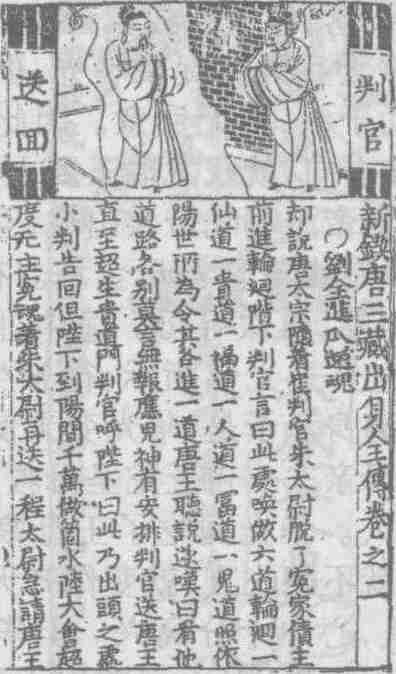 判官
送回
新鋟唐三藏出身全傳卷之二
〇劉全進瓜還魂
却說唐太宗隨着崔判官朱太尉脫了冤家債主
前進輪廻階下判官言曰此處喚做六道輪廻一
仙道一貴道一福道一人道一冨道一鬼道照依
陽世所為令其各進一道唐王聽說嘆曰看他
道路各別莫言無報應鬼神有安排判官送唐王
直至超生貴道門判官呼陛下曰此乃出頭之處
小判告回但陛下到陽間千萬做箇水陸大會超
度无主冤魂着朱太尉再送一程太尉急請唐王